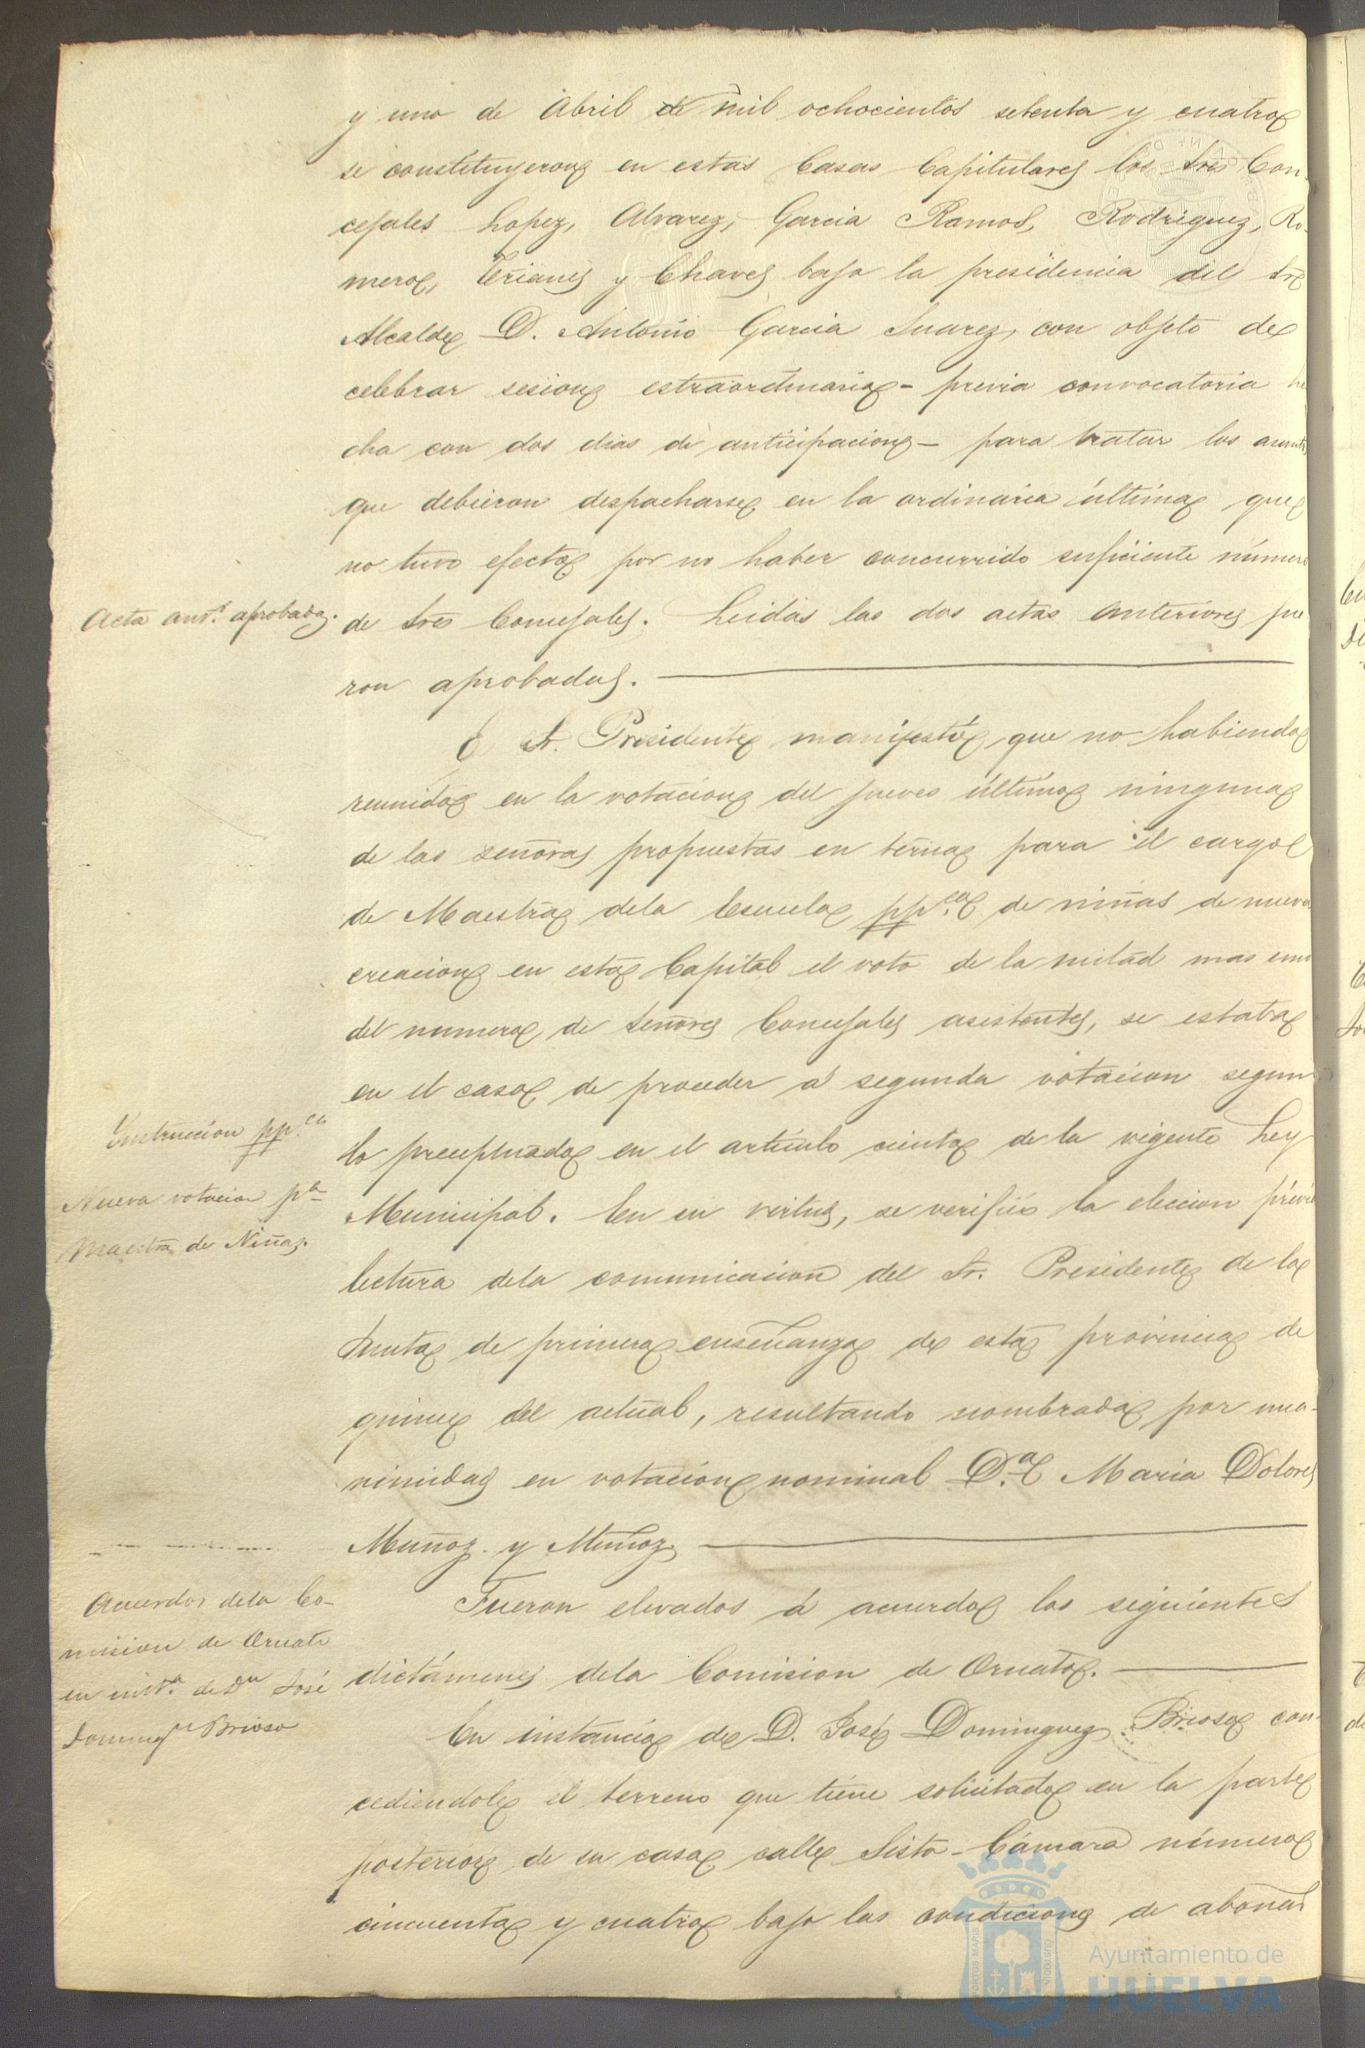 y uno de Abril de mil ochocientos setenta y cuatro
se constituyeron en estas Casas Capitulares los Sres Con-
cejales Lopez, Alvarez, Garcia Ramos, Rodriguez, Ro-
mero, Trianes y Chaves bajo la presidencia del Sr
Alcalde D. Antonio Garcia Suarez, con objeto de
celebrar sesion estraordinaria - previa convocatoria he
cha con dos dias de anticipacion - para tratar los asuntos
que debieron despacharse en la ordinaria última que
no tuvo efecto por no haber concurrido suficiente número
Acta ant.r aprobada.
de Sres Concejales. Leidas las dos actas anteriores fue
ron aprobadas.
Sr. Presidente manifestó que no habiendo
reunido en la votacion del jueves último ninguna
de las señoras propuestas en terna para el cargo
de Maestra dela Escuela pp.ca de niñas de nueva
creacion en esta Capital el voto de la mitad mas uno
del numero de Señores Concejales asistentes, se estaba
en el caso de proceder á segunda votacion segun
Instruccion pp.ca
lo preceptuado en el artículo ciento de la vigente Ley
Nueva votacion p.a
Municipal. En su virtud, se verificó la eleccion prévia
Maestra de Niñas.
lectura dela comunicacion del Sr. Presidente de la
Junta de primera enseñanza de esta provincia de
quince del actual, resultando nombrada por una-
nimidad en votacion nominal D.a Maria Dolores
Muñoz y Muñoz.
Fueron elevados á acuerdo los siguientes
Acuerdos dela Co-
mision de Ornato
dictámenes dela Comision de Ornato.
en inst.a de Dn José
Doming.z Brioso
En instancia de D. José Dominguez Brioso con-
cediendole el terreno que tiene solicitado en la parte
posterior de su casa calle Sisto-Cámara número
cincuenta y cuatro bajo las condiciones de abonar
Ayuntamiento de
HUELVA